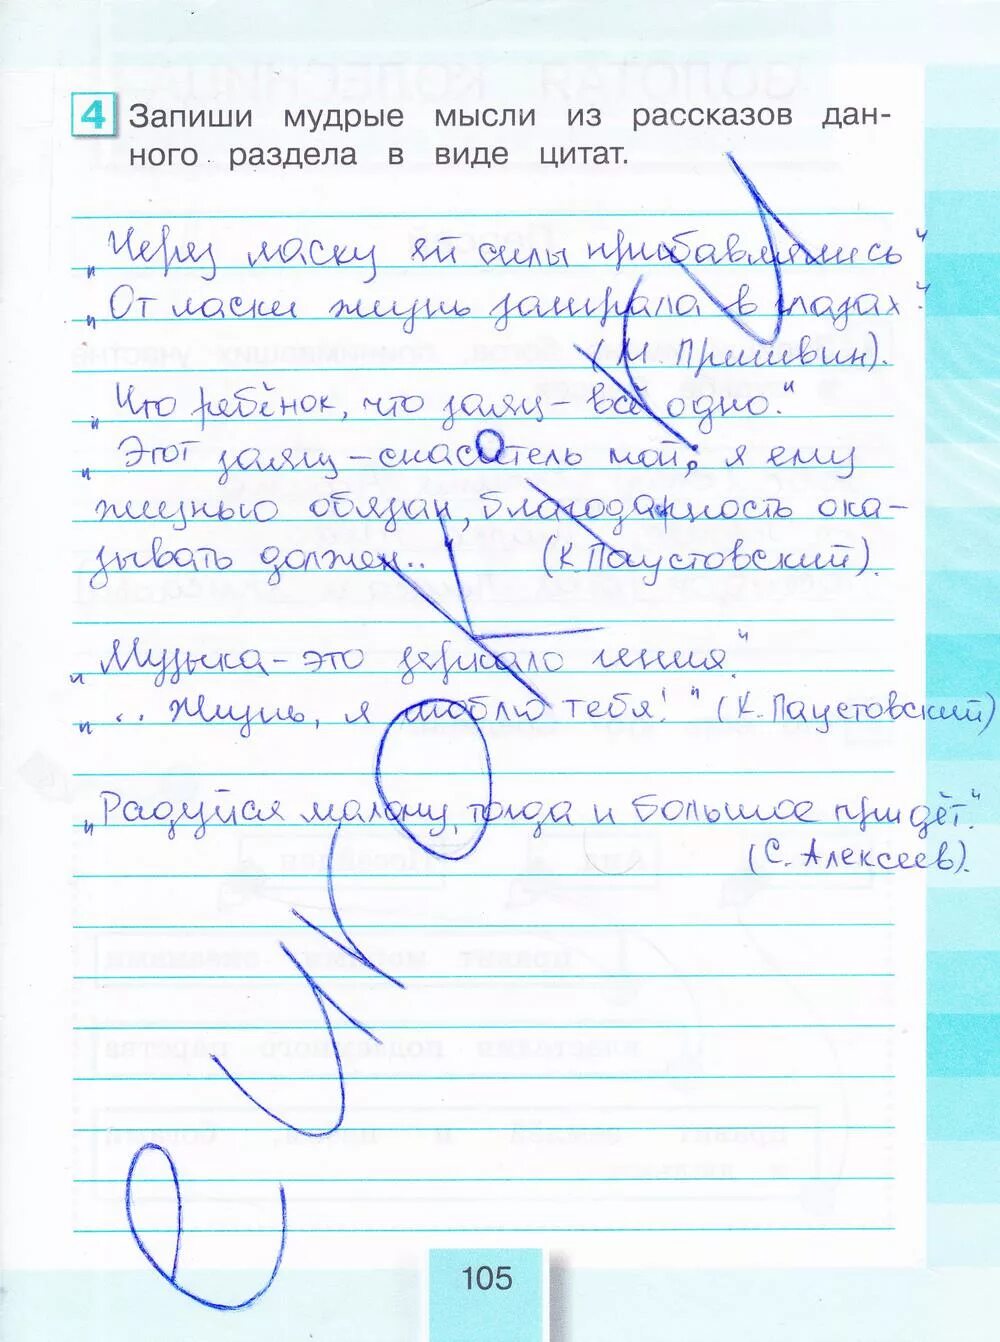 4 Запиши мудрые мысли из рассказов дан-
ного раздела в виде цитат.
„Через ласку ей силы прибавлялись“
„От ласки жизнь замирала в глазах“.
(М. Пришвин).
„Что ребёнок, что заяц – всё одно.“
„Этот заяц – спаситель мой: я ему
жизнью обязан, благодарность ока-
зывать должен.. (К. Паустовский).
„Музыка – это зеркало гения“.
„.. Жизнь, я люблю тебя!“ (К. Паустовский)
„Радуйся малому, тогда и большое придёт.“
(С. Алексеев).
105